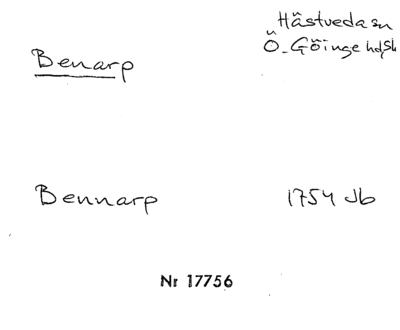 Hästveda sn
Ö. Göinge hd, Sk
Benarp
Bennarp 1754 Jb
Nr 17756